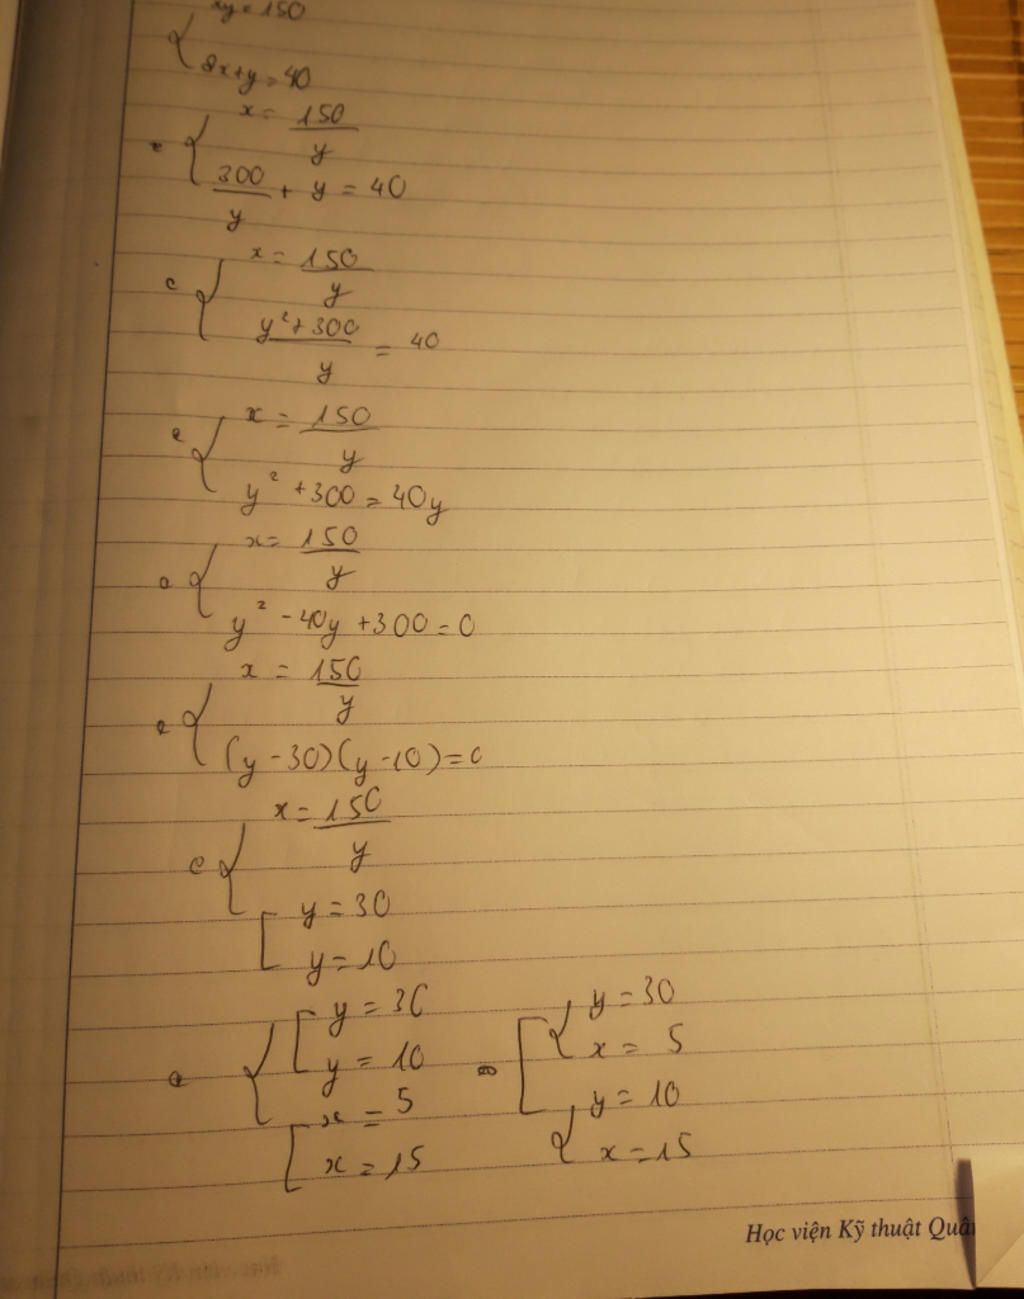 xy = 150
2x+y = 40
x = 150/y
300/y + y = 40
x = 150/y
y²+300/y = 40
x = 150/y
y² +300 = 40y
x = 150/y
y² - 40y +300 = 0
x = 150/y
(y - 30)(y - 10) = 0
x = 150/y
y = 30
y = 10
y = 30 y = 30
y = 10 x = 5
x = 5 y = 10
x = 15 x = 15
Học viện Kỹ thuật Quâ